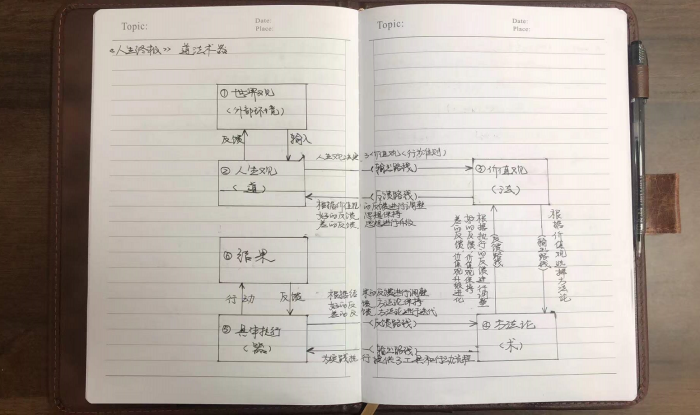 Topic:
Date:
Place:
Topic:
Date:
Place:
《人生 》 道法术器
① 世界观
(外部环境)
反馈
输入
② 人生观
(道)
人生观 了价值观(行为准则)
(输出路线)
③ 价值观
(法)
(反馈路线)
根据价值观的反馈进行调整
好的反馈 思想保持
差的反馈 思想进行升级
根据执行的反馈进行调整
好的反馈,价值观保持
差的反馈,价值观升级进化
反馈路线
输出路线
根据价值观选择方法论
⑥ 结果
行动
反馈
根据结果的反馈进行调整
好的反馈 方法论保持
差的反馈 方法论进行迭代
⑤ 具体执行
(器)
(反馈路线)
(输出路线)
④ 方法论
(术)
为 执行提供了工具和行动